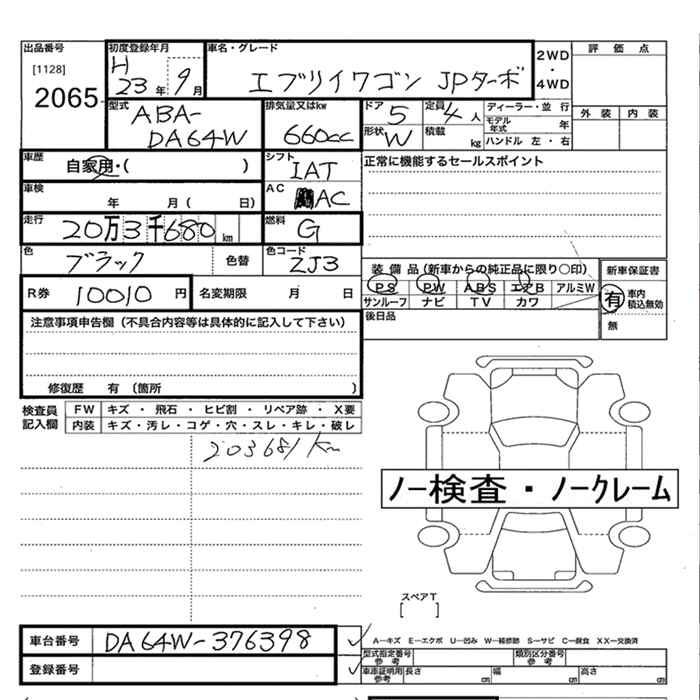 出品番号 初度登録年月 車名・グレード
[1128]
2065
H 23年 9月
エブリイワゴン JPターボ
2WD・4WD
評価点
型式 ABA-DA64W
排気量又はkw 660cc
ドア 5
定員 4人
形状 W
積載 kg
ディーラー・並行
モデル年式 年
ハンドル 左・右
外装 内装
車歴 自家用・( )
シフト IAT
正常に機能するセールスポイント
車検 年 月( 日)
AC AC
走行 20万3千680km
燃料 G
色 ブラック 色替
色コード ZJ3
装備品(新車からの純正品に限り○印)
PS PW ABS エアB アルミW
サンルーフ ナビ TV カワ
新車保証書
有 車内積込無効
無
R券 10010円
名変期限 月 日
後日品
注意事項申告欄(不具合内容等は具体的に記入して下さい)
修復歴 有(箇所 )
検査員記入欄
FW キズ・飛石・ヒビ割・リペア跡・X要
内装 キズ・汚レ・コゲ・穴・スレ・キレ・破レ
203681km
ノー検査・ノークレーム
スペアT
[ ]
車台番号 DA64W-376398
登録番号
A-キズ E-エクボ U-凹み W-補修跡 S-サビ C-腐食 XX-交換済
型式指定番号 参考
類別区分番号 参考
車庫証明用 参考 長さ cm 幅 cm 高さ cm